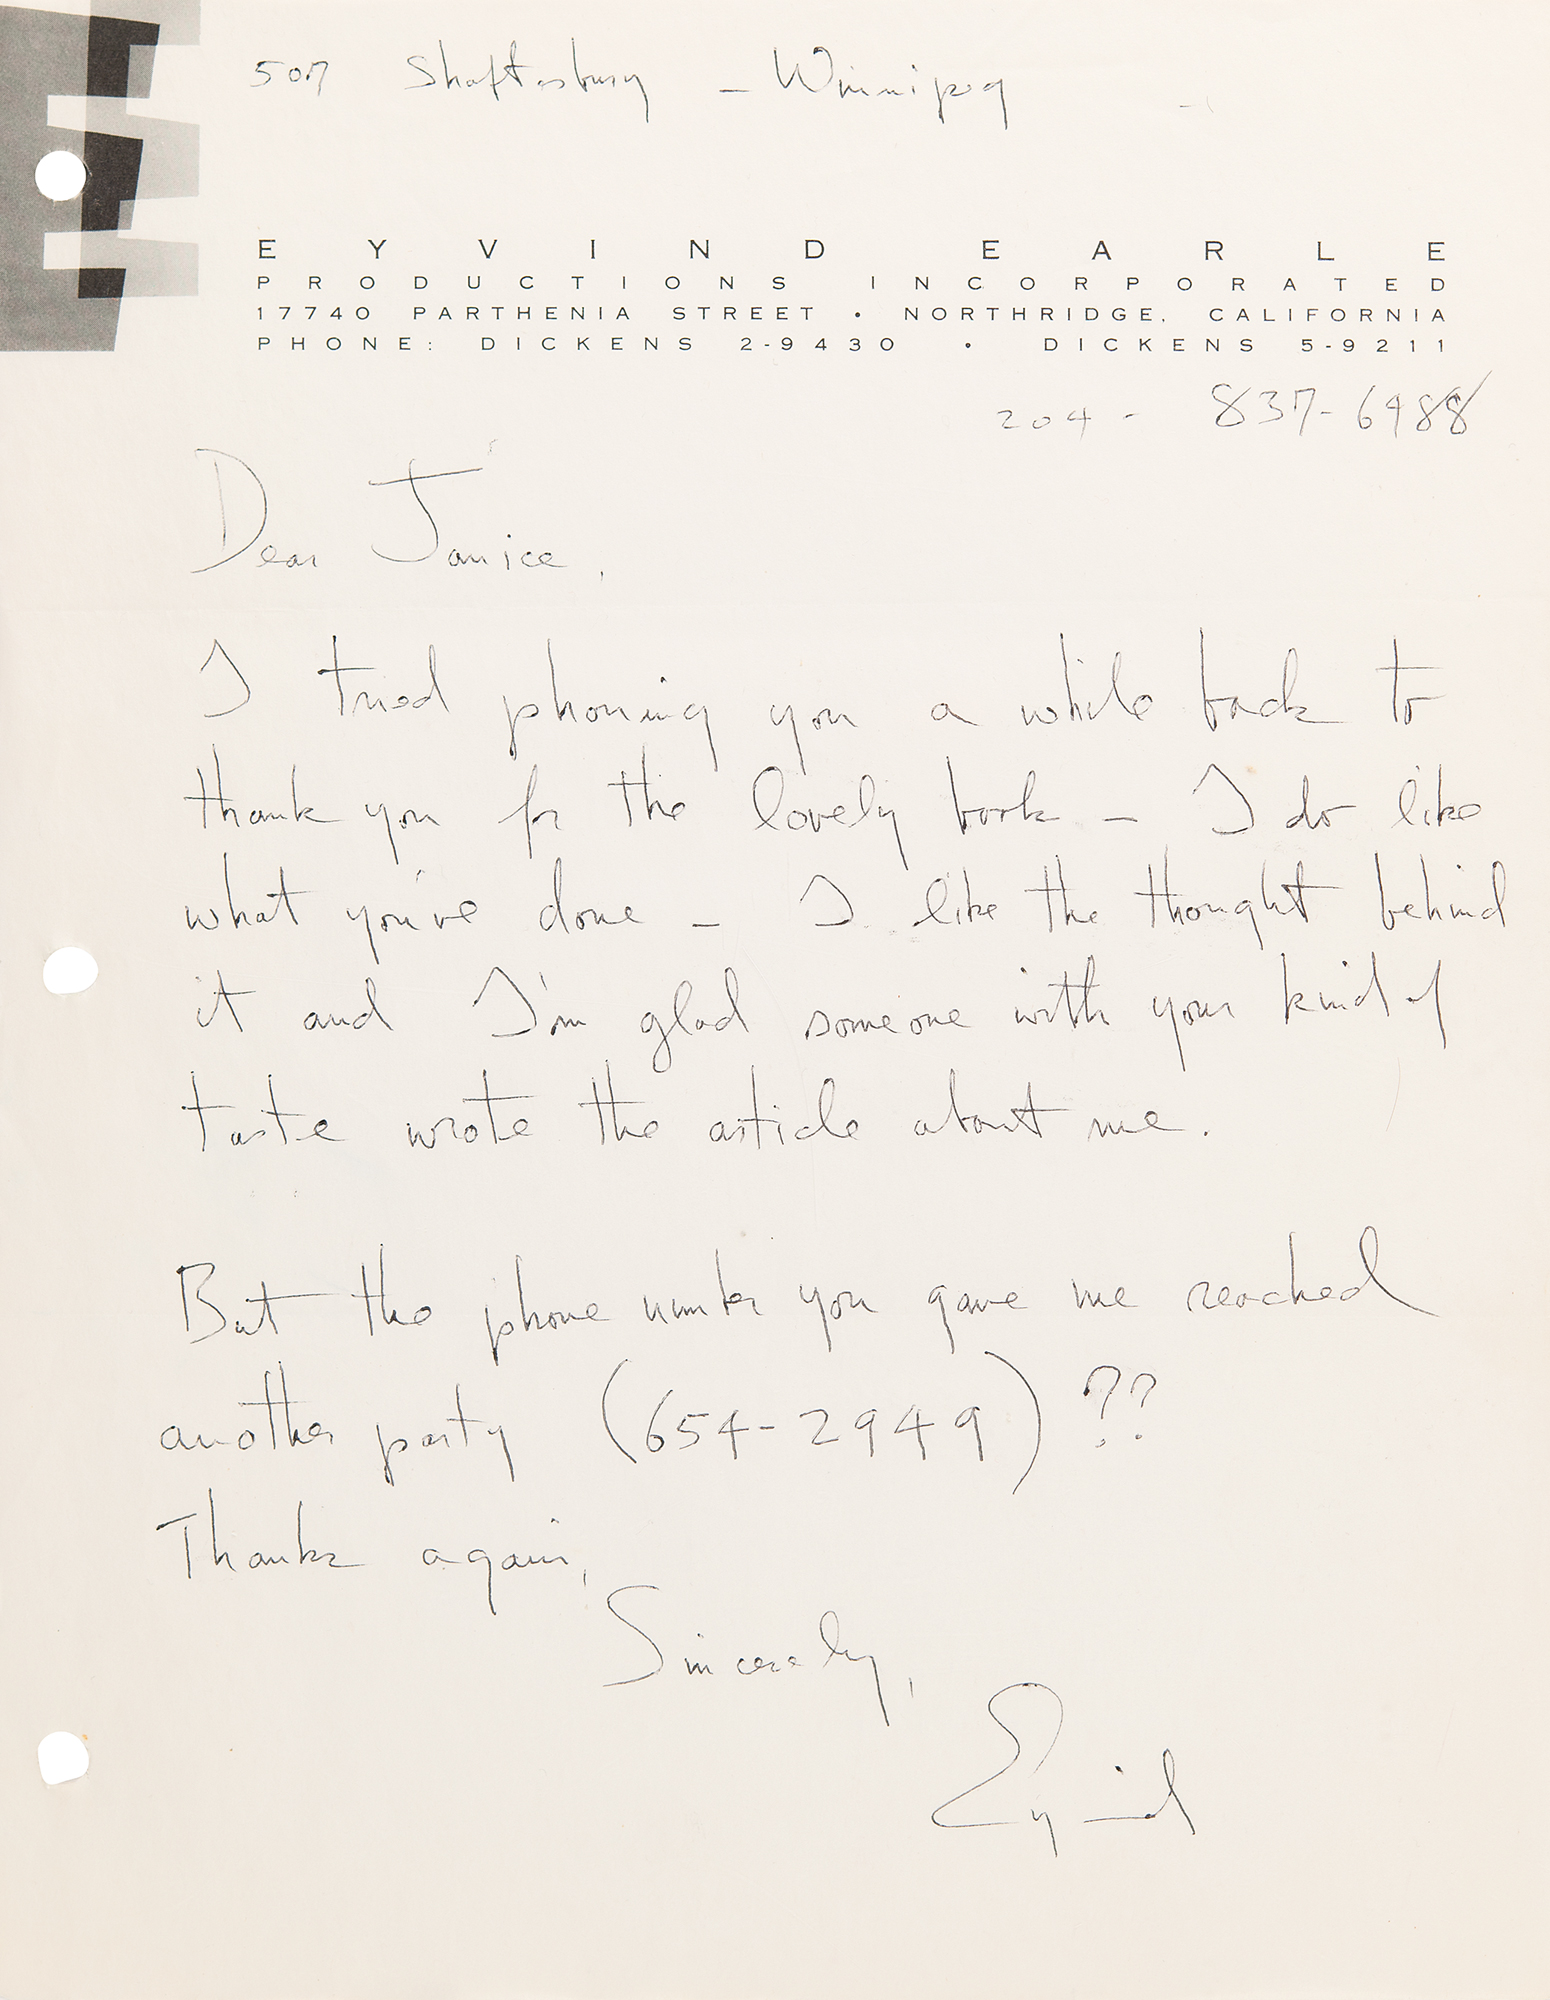 507 Shaftesbury - Winnipeg
EYVIND EARLE
PRODUCTIONS INCORPORATED
17740 PARTHENIA STREET • NORTHRIDGE, CALIFORNIA
PHONE: DICKENS 2-9430 • DICKENS 5-9211
204 - 837-6488
Dear Janice,
I tried phoning you a while back to
thank you for the lovely book - I do like
what you've done - I like the thought behind
it and I'm glad someone with your kind of
taste wrote the article about me.
But the phone number you gave me reached
another party (654-2949) ??
Thanks again,
Sincerely,
Eyvind